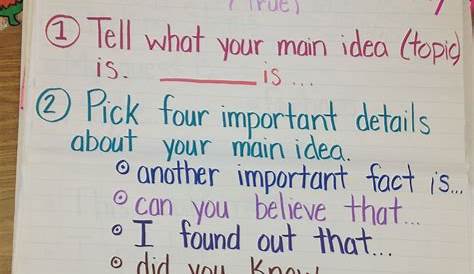 (True)
① Tell what your main idea (topic)
is. ________ is ...
② Pick four important details
about your main idea.
o another important fact is...
o can you believe that...
o I found out that...
o did you know